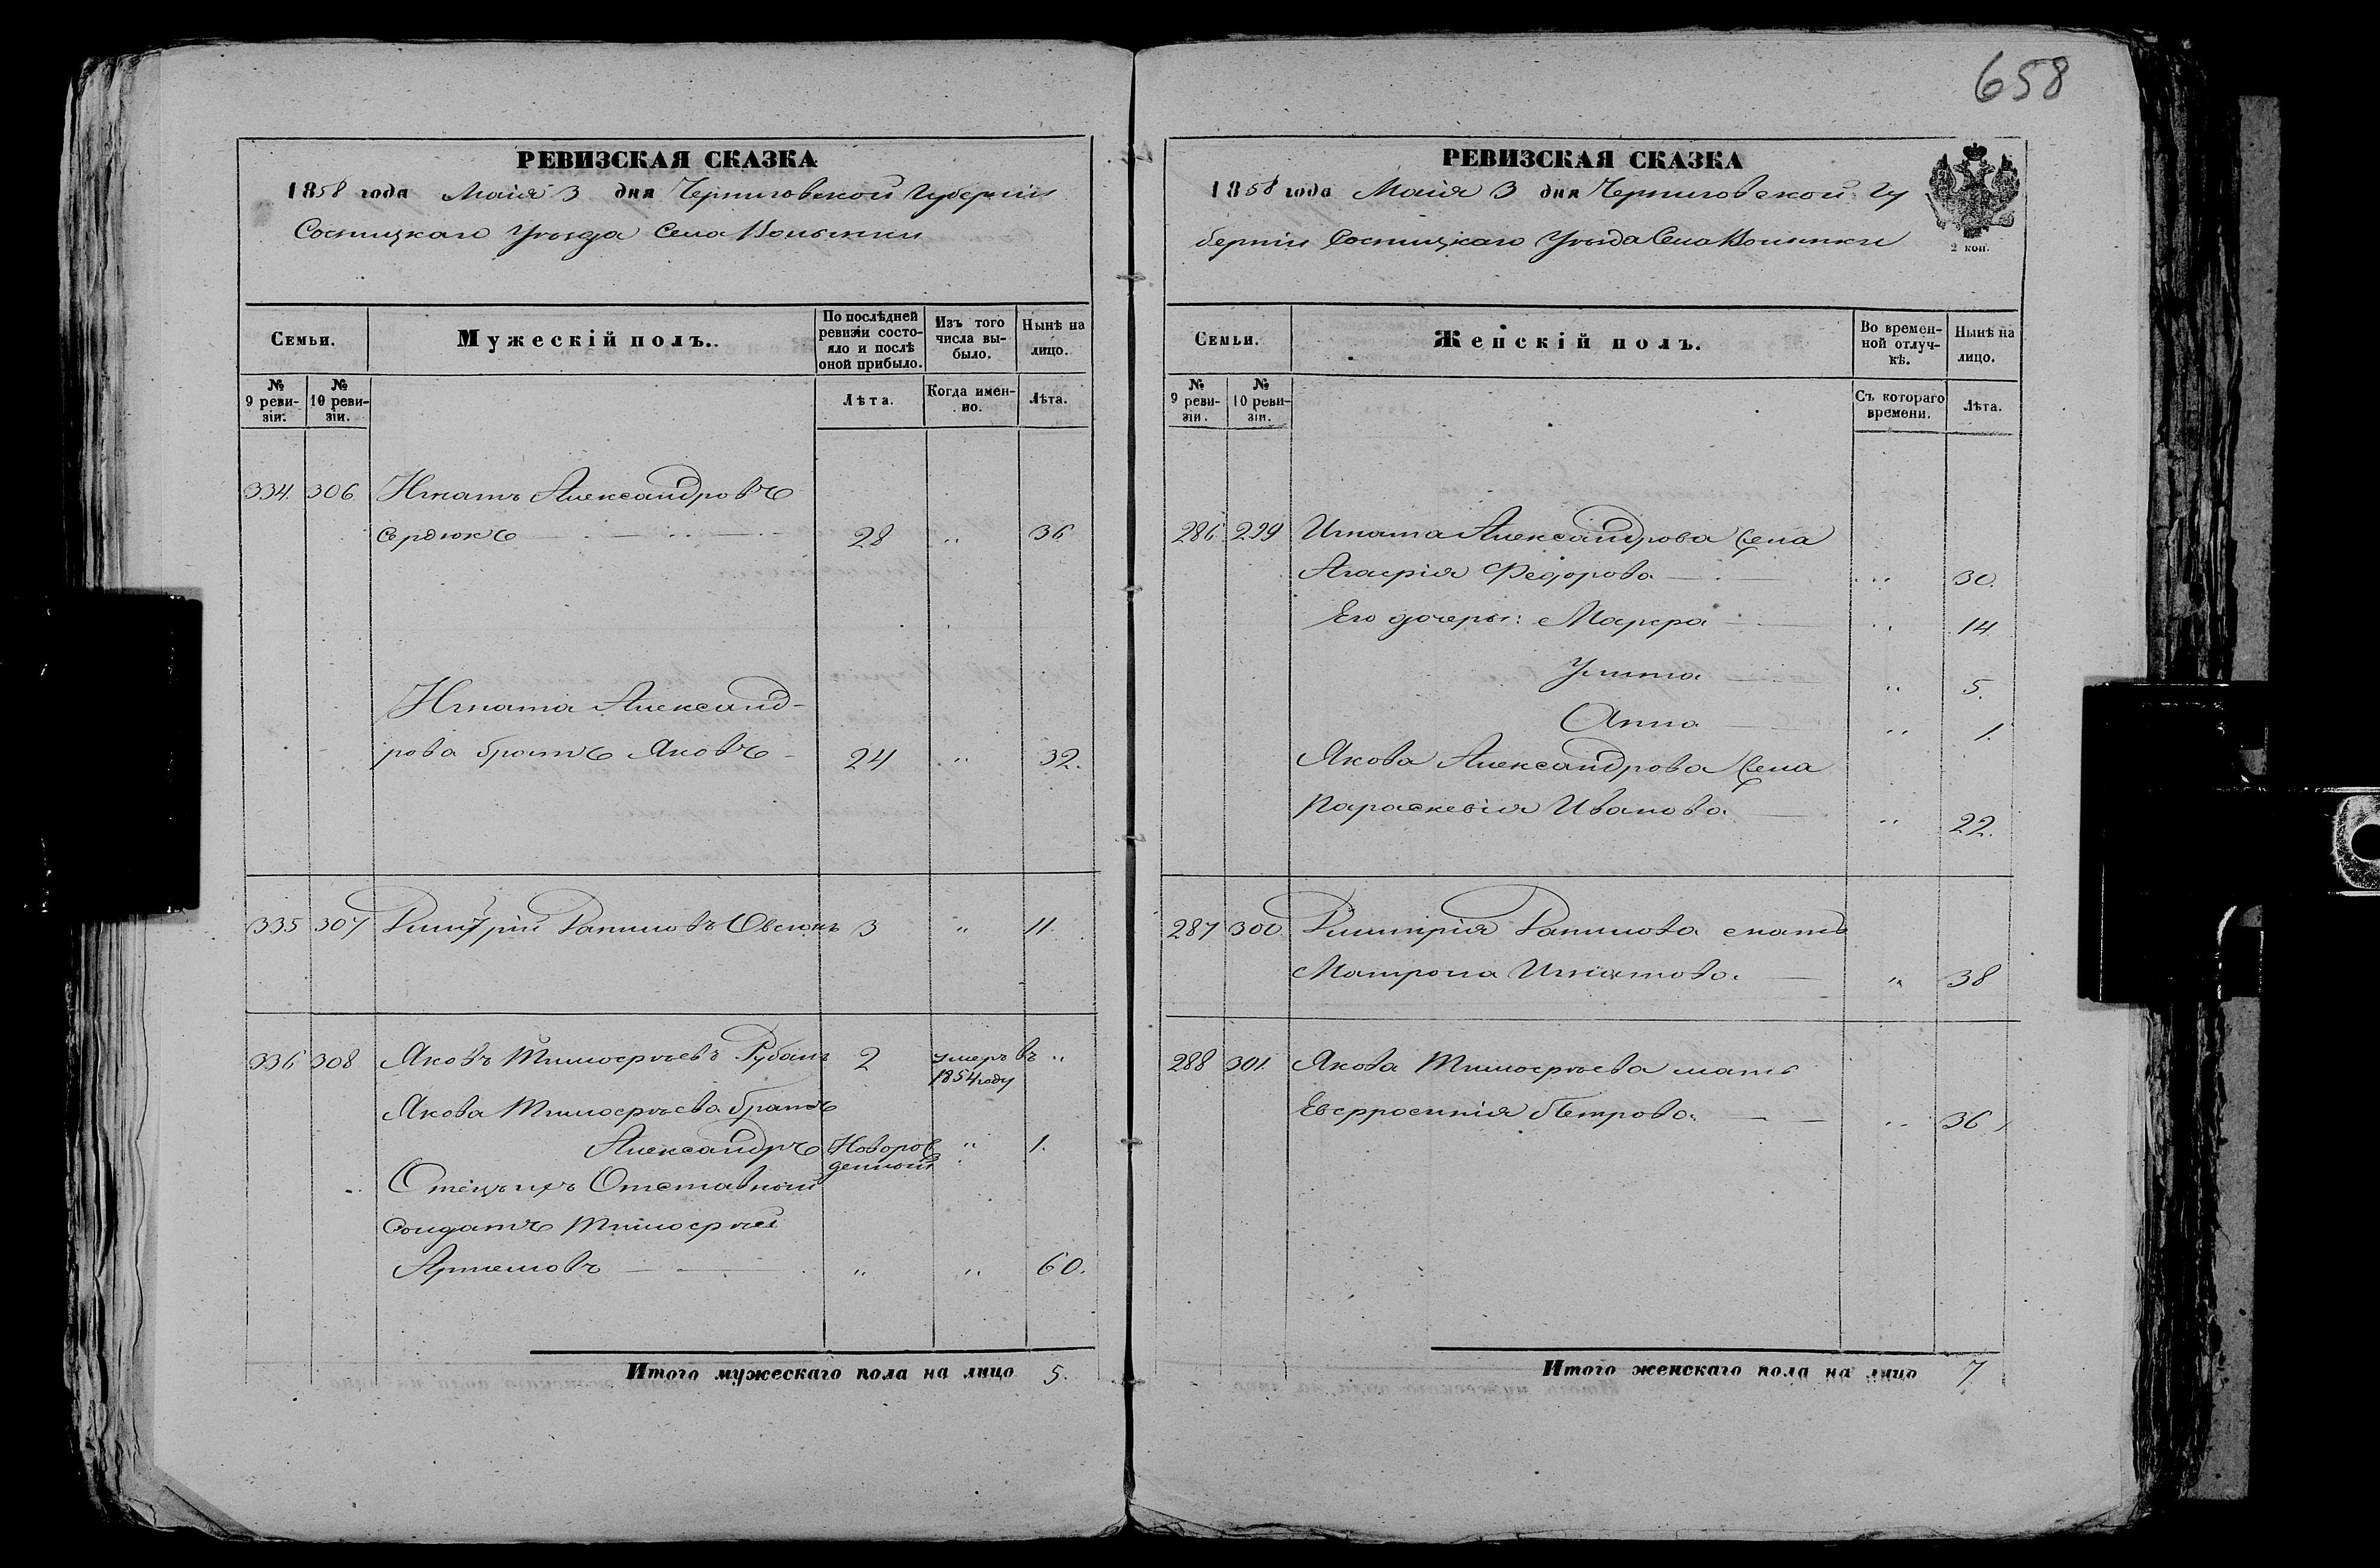 658
РЕВИЗСКАЯ СКАЗКА
1858 года Маія 3 дня Черниговской Губерніи
Сосницкаго Уѣзда Села Волынки
Семьи.
Мужескій полъ.
По послѣдней ревизіи состояло и послѣ оной прибыло.
Изъ того числа выбыло.
Нынѣ на лицо.
№ 9 ревизіи.
№ 10 ревизіи.
Лѣта.
Когда именно.
Лѣта.
334. 306. Игнатъ Александровъ
Сердюкъ 28 " 36
Игната Александ-
рова братъ Яковъ 24 " 32.
335 307 Димитрій Даниловъ Овсюкъ 3 " 11.
336 308 Яковъ Тимофѣевъ Рубанъ 2 умеръ въ "
1854 году
Якова Тимофѣева братъ
Александръ Новорож " 1.
денный
Отецъ ихъ Отставный
Солдатъ Тимофѣй
Артемовъ " " 60.
Итого мужескаго пола на лицо 5.
РЕВИЗСКАЯ СКАЗКА
1858 года Маія 3 дня Черниговской Гу
берніи Сосницкаго Уѣзда Села Волынки
2 коп.
Семьи.
Женскій полъ.
Во временной отлучкѣ.
Нынѣ на лицо.
№ 9 ревизіи.
№ 10 ревизіи.
Съ котораго времени.
Лѣта.
286 299 Игната Александрова жена
Агафія Федорова " 30.
Его дочеры: Марфа " 14
Улита " 5.
Анна " 1.
Якова Александрова жена
Параскевія Иванова " 22.
287 300 Димитрія Данилова мать
Матрона Игнатова " 38
288 301. Якова Тимофѣева мать
Евфросинія Петрова " 36
Итого женскаго пола на лицо 7